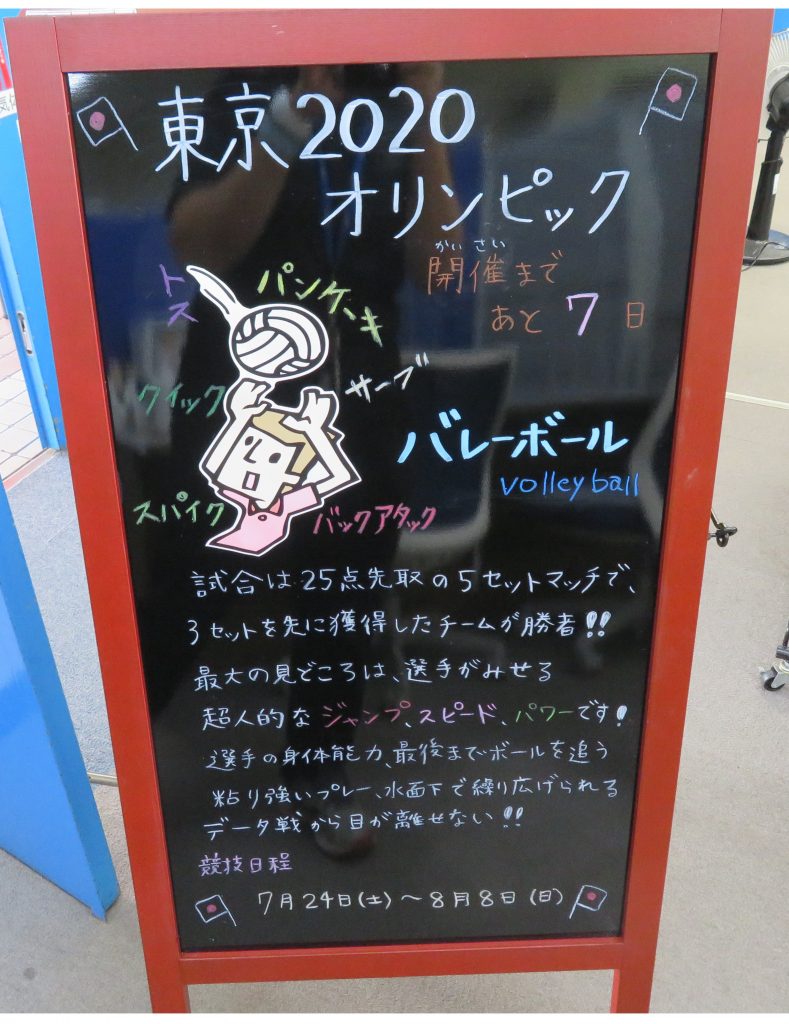 東京2020
オリンピック
がいさい
開催まで
あと 7 日
トス
パンケーキ
クイック
サーブ
スパイク
バックアタック
バレーボール
volleyball
試合は25点先取の5セットマッチで、
3セットを先に獲得したチームが勝者!!
最大の見どころは、選手がみせる
超人的なジャンプ、スピード、パワーです!
選手の身体能力、最後までボールを追う
粘り強いプレー、水面下で繰り広げられる
データ戦から目が離せない!!
競技日程
7月24日(土)~8月8日(日)